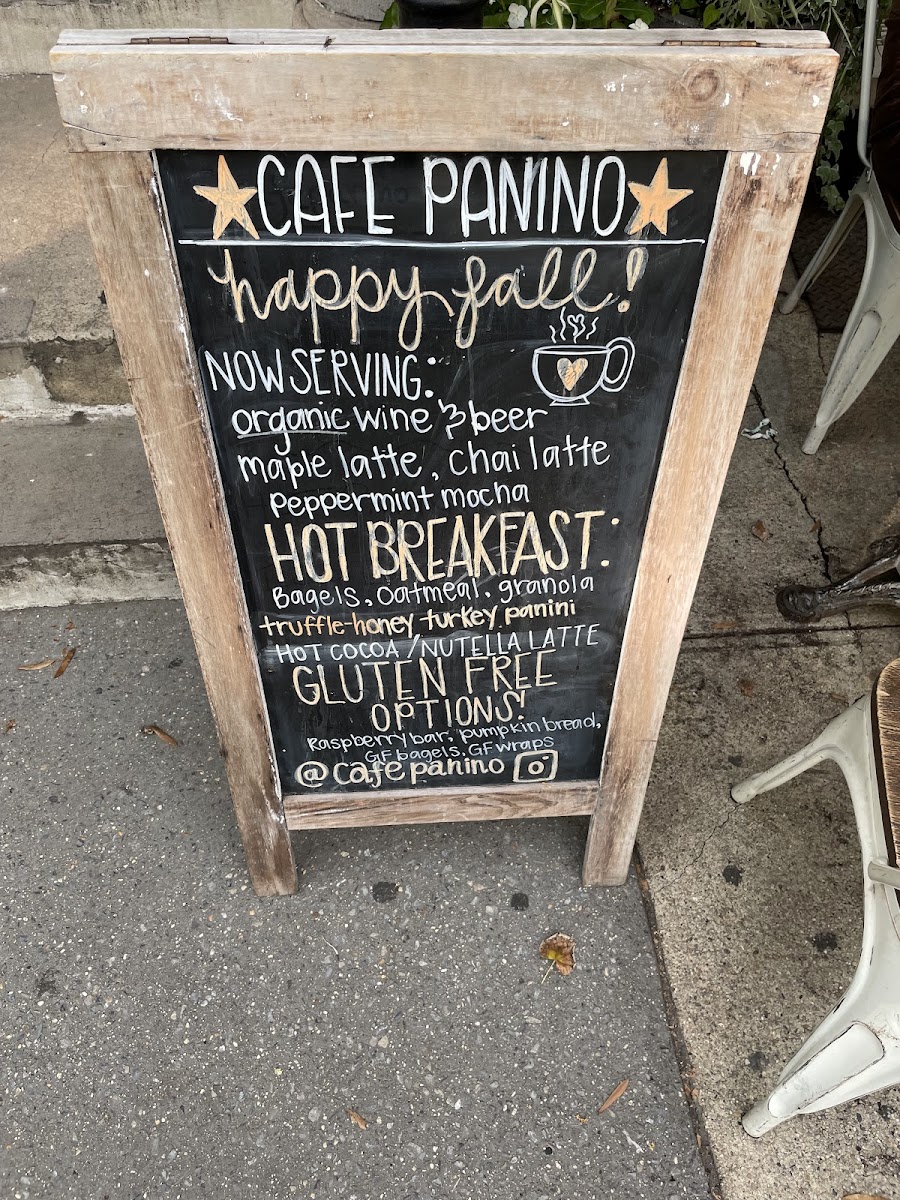 CAFE PANINO
happy fall!
NOW SERVING:
organic wine & beer
maple latte, chai latte
peppermint mocha
HOT BREAKFAST:
Bagels, oatmeal, granola
truffle-honey turkey panini
HOT COCOA / NUTELLA LATTE
GLUTEN FREE
OPTIONS!
Raspberry bar, pumpkin bread,
GF bagels, GF wraps
@cafepanino